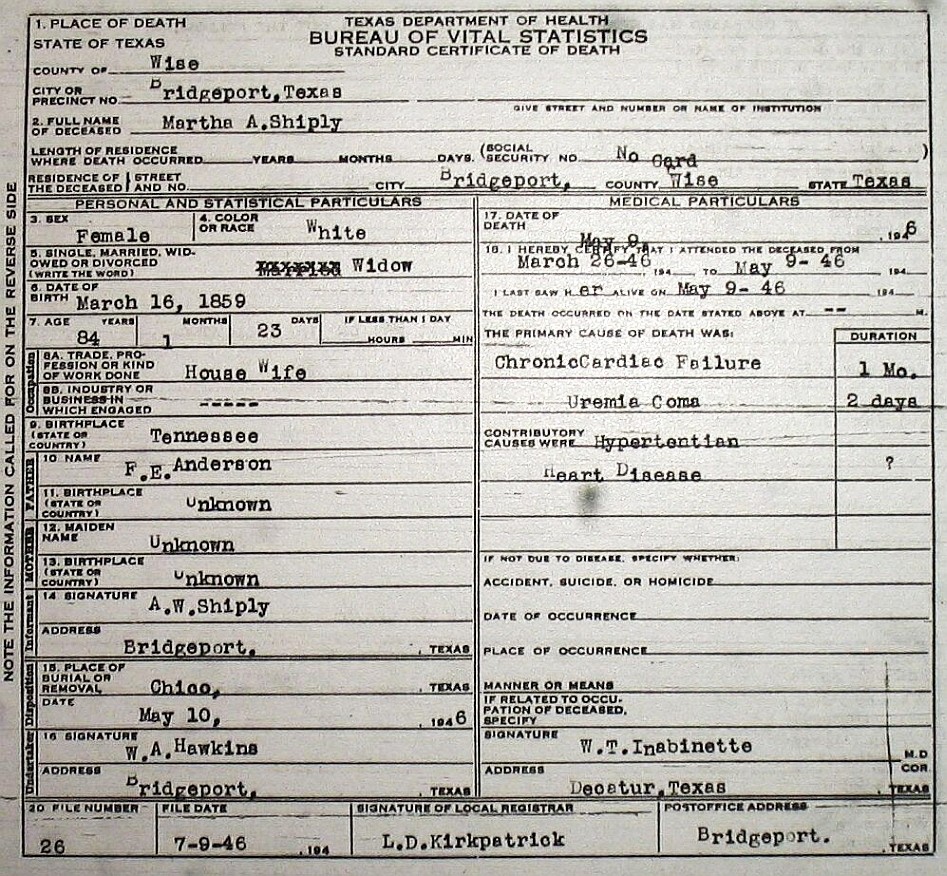 TEXAS DEPARTMENT OF HEALTH
BUREAU OF VITAL STATISTICS
STANDARD CERTIFICATE OF DEATH
1. PLACE OF DEATH
STATE OF TEXAS
COUNTY OF Wise
CITY OR PRECINCT NO. Bridgeport,Texas
GIVE STREET AND NUMBER OR NAME OF INSTITUTION
2. FULL NAME OF DECEASED Martha A.Shiply
LENGTH OF RESIDENCE WHERE DEATH OCCURRED YEARS MONTHS DAYS. (SOCIAL SECURITY NO. No Card )
RESIDENCE OF THE DECEASED STREET AND NO. CITY Bridgeport, COUNTY Wise STATE Texas
PERSONAL AND STATISTICAL PARTICULARS
3. SEX Female
4. COLOR OR RACE White
5. SINGLE, MARRIED, WIDOWED OR DIVORCED (WRITE THE WORD) Married Widow
6. DATE OF BIRTH March 16, 1859
7. AGE YEARS 84 MONTHS 1 DAYS 23 IF LESS THAN 1 DAY HOURS MIN
Occupation
8A. TRADE, PROFESSION OR KIND OF WORK DONE House Wife
8B. INDUSTRY OR BUSINESS IN WHICH ENGAGED -----
9. BIRTHPLACE (STATE OR COUNTRY) Tennessee
FATHER
10 NAME F.E.Anderson
11. BIRTHPLACE (STATE OR COUNTRY) Unknown
MOTHER
12. MAIDEN NAME Unknown
13. BIRTHPLACE (STATE OR COUNTRY) Unknown
Informant
14 SIGNATURE A.W.Shiply
ADDRESS Bridgeport. , TEXAS
Undertaker Disposition
15. PLACE OF BURIAL OR REMOVAL Chico, , TEXAS
DATE May 10, , 1946
16 SIGNATURE W.A.Hawkins
ADDRESS Bridgeport. , TEXAS
MEDICAL PARTICULARS
17. DATE OF DEATH May 9, , 1946
18. I HEREBY CERTIFY THAT I ATTENDED THE DECEASED FROM
March 26-46 , 194 TO May 9- 46 194
I LAST SAW Her ALIVE ON May 9- 46 194
THE DEATH OCCURRED ON THE DATE STATED ABOVE AT -- M.
THE PRIMARY CAUSE OF DEATH WAS: DURATION
ChronicCardiac Failure 1 Mo.
Uremia Coma 2 days
CONTRIBUTORY CAUSES WERE Hypertentian
Heart Disease ?
IF NOT DUE TO DISEASE, SPECIFY WHETHER:
ACCIDENT, SUICIDE, OR HOMICIDE
DATE OF OCCURRENCE
PLACE OF OCCURRENCE
MANNER OR MEANS
IF RELATED TO OCCUPATION OF DECEASED, SPECIFY
SIGNATURE W.T.Inabinette M.D
ADDRESS Decatur,Texas COR. , TEXAS
20. FILE NUMBER 26
FILE DATE 7-9-46 , 194
SIGNATURE OF LOCAL REGISTRAR L.D.Kirkpatrick
POSTOFFICE ADDRESS Bridgeport. , TEXAS
NOTE THE INFORMATION CALLED FOR ON THE REVERSE SIDE